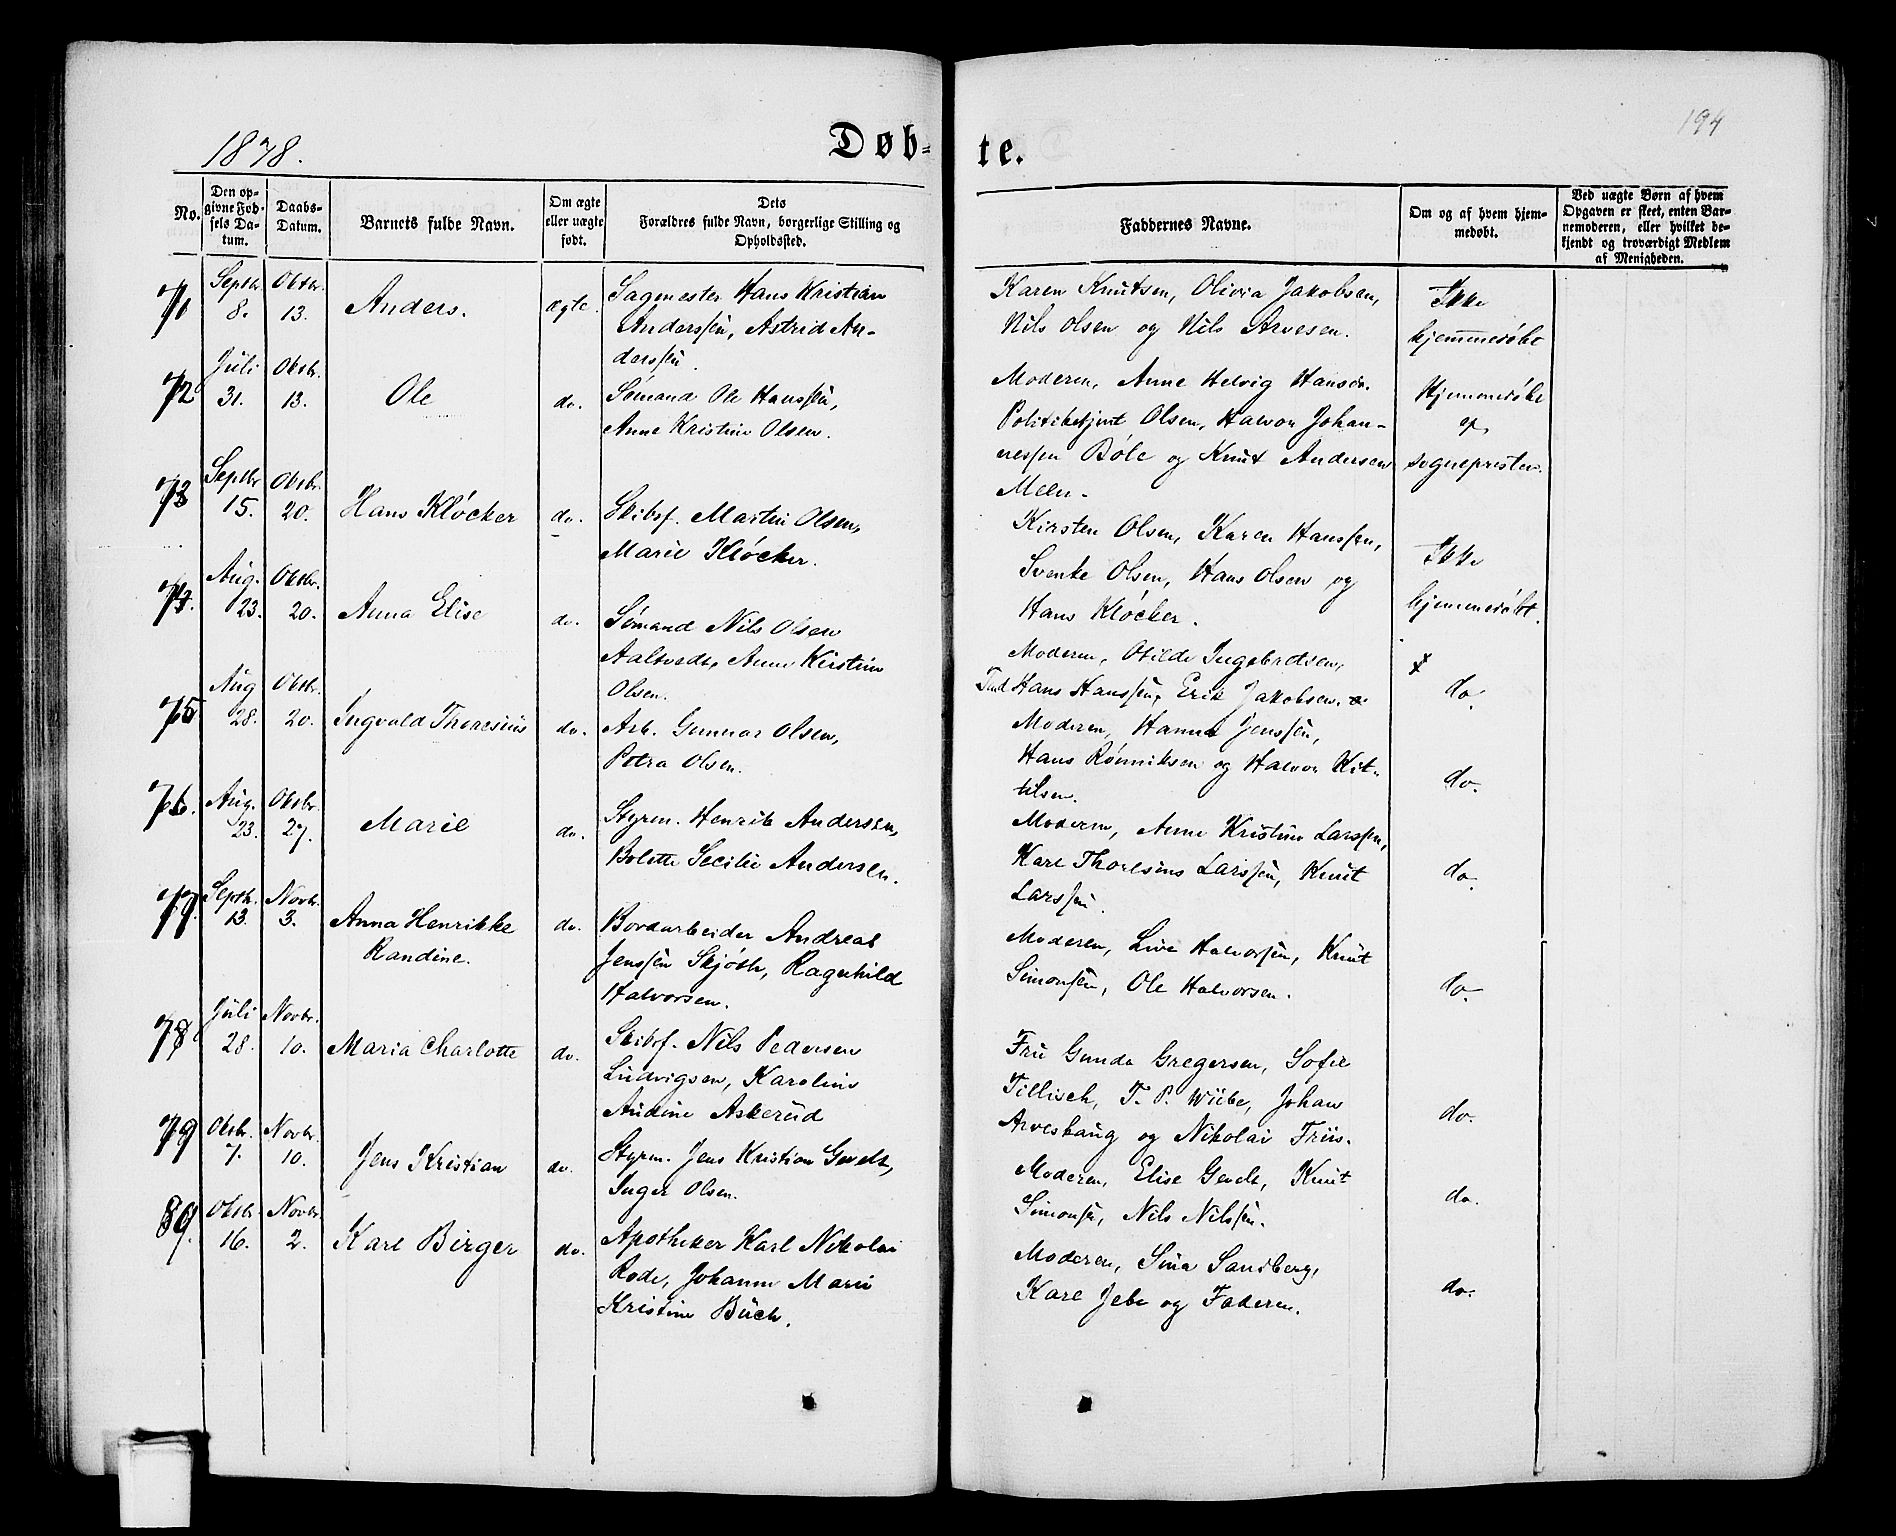 1878.
Døb-
te.
194
No.
Den op-
givne Fød-
sels Da-
tum.
Daabs-
Datum.
Barnets fulde Navn.
Om ægte
eller uægte
født.
Dets
Forældres fulde Navn, borgerlige Stilling og
Opholdssted.
Faddernes Navne.
Om og af hvem hjem-
medøbt.
Ved uægte Børn af hvem
Opgaven er skeet, enten Bar-
nemoderen, eller hvilket be-
kjendt og troværdigt Medlem
af Menigheden.
71 Septbr. 8. Oktbr. 13. Anders. ægte.
Sagmester Hans Kristian
Anderssen, Astrid An-
derssen.
Karen Knutsen, Olivia Jakobsen,
Nils Olsen og Nils Arvesen.
Ikke
hjemmedøbt
72 Juli 31. Oktbr. 13. Ole do.
Sømand Ole Hanssen,
Anne Kristine Olsen.
Moderen, Anne Helvig Hansen.
Politibetjent Olsen, Halvor Johan-
nessen Bøle og Knut Andersen
Melen.
Hjemmedøbt
af
sognepresten.
73 Septbr 15. Oktbr. 20. Hans Kløcker do.
Skibsf. Martin Olsen,
Marie Kløcker.
Kirsten Olsen, Karen Hanssen,
Svenke Olsen, Hans Olsen og
Hans Kløcker.
Ikke
hjemmedøbt.
74. Aug. 23. Oktbr. 20. Anna Elise do.
Sømand Nils Olsen
Aaltvedt, Anne Kirstine
Olsen.
Moderen, Otilde Ingebretsen,
Hans Hanssen, Erik Jakobsen.
do.
75 Aug 28. Oktbr. 20. Ingvald Thoresius do.
Arb. Gunnar Olsen,
Petra Olsen.
Moderen, Hanna Jenssen,
Hans Rønniksen og Halvor Kit-
tilsen.
do.
76. Aug. 23. Oktbr. 27. Marie do.
Styrm. Henrik Andersen,
Bolette Secilie Andersen.
Moderen, Anne Kristine Larssen,
Karl Thoresius Larssen, Knut
Larssen.
do.
77. Septbr. 13. Novbr. 3. Anna Henrikke
Randine. do.
Bordarbeider Andreas
Jenssen Skjøth, Ragnhild
Halvorsen.
Moderen, Live Halvorsen, Knut
Simonsen, Ole Halvorsen.
do.
78 Juli 28. Novbr. 10. Maria Charlotte do.
Skibsf. Nils Pedersen
Ludvigsen, Karoline
Andine Askerud
Fru Gunda Gregersen, Sofie
Tillisch, T. P. Wiibe, Johan
Arveskaug og Nikolai Friis.
do.
79 Oktbr. 7. Novbr. 10. Jens Kristian do.
Styrm. Jens Kristian Gendt,
Inger Olsen.
Moderen, Elise Gendt, Knut
Simonsen, Nils Nilssen.
do.
80. Oktbr. 16. Novbr. 2. Karl Birger do.
Apotheker Karl Nikolai
Rode, Johanne Marie
Kristine Buch.
Moderen, Sina Sandberg,
Karl Jebe og Faderen.
do.